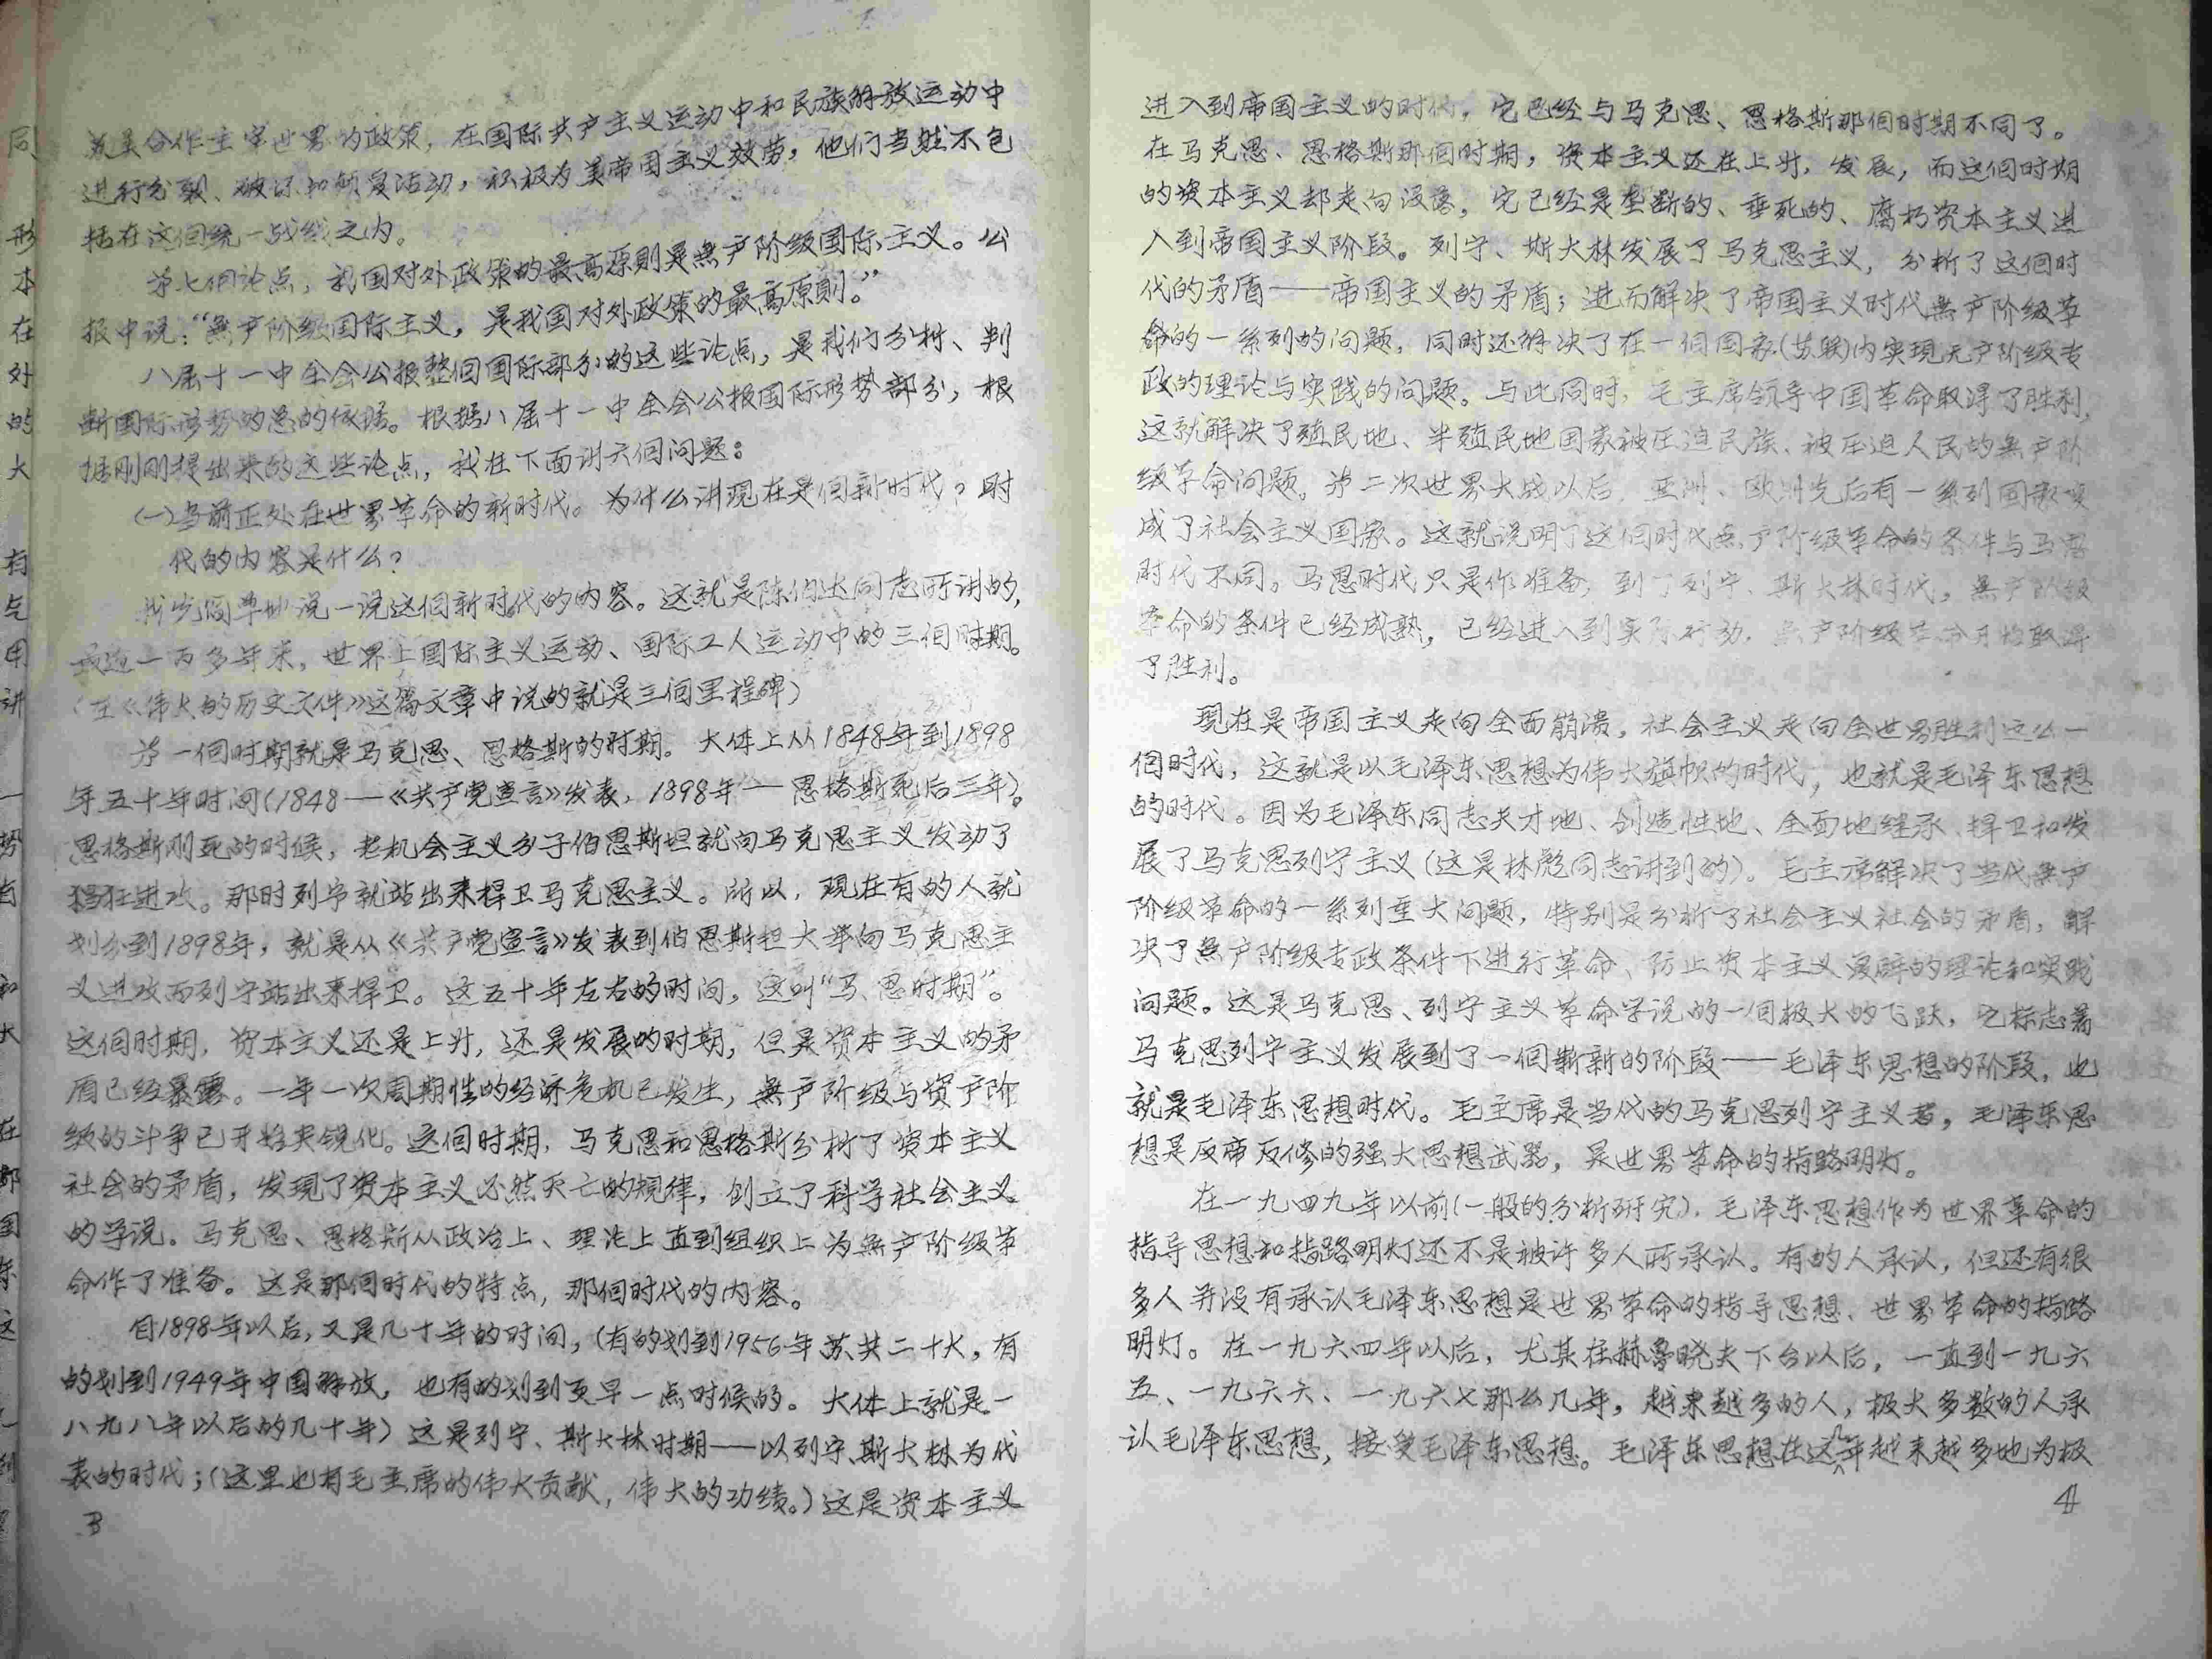 苏美合作主宰世界的政策，在国际共产主义运动中和民族解放运动中
进行分裂、破坏和颠复活动，积极为美帝国主义效劳，他们当然不包
括在这個统一战线之内。
第七個论点，我国对外政策的最高原则是無产阶级国际主义。公
报中说：“無产阶级国际主义，是我国对外政策的最高原则。”
八届十一中全会公报整個国际部分的这些论点，是我们分析、判
断国际形势的总的依据。根据八届十一中全会公报国际形势部分，根
据刚刚提出来的这些论点，我在下面讲六個问题：
(一)当前正处在世界革命的新时代。为什么讲现在是個新时代？时
代的内容是什么？
我先简单地说一说这個新时代的内容。这就是陈伯达同志所讲的，
最近一百多年来，世界上国际主义运动、国际工人运动中的三個时期。
（在《伟大的历史文件》这篇文章中说的就是三個里程碑）
第一個时期就是马克思、恩格斯的时期。大体上从1848年到1898
年五十年时间(1848—《共产党宣言》发表，1898年—恩格斯死后三年)。
恩格斯刚死的时候，老机会主义分子伯恩斯坦就向马克思主义发动了
猖狂进攻。那时列宁就站出来捍卫马克思主义。所以，现在有的人就
划分到1898年，就是从《共产党宣言》发表到伯恩斯坦大举向马克思主
义进攻而列宁站出来捍卫。这五十年左右的时间，这叫“马、恩时期”。
这個时期，资本主义还是上升，还是发展的时期，但是资本主义的矛
盾已经暴露。一年一次周期性的经济危机已发生，無产阶级与资产阶
级的斗争已开始尖锐化。这個时期，马克思和恩格斯分析了资本主义
社会的矛盾，发现了资本主义必然灭亡的规律，创立了科学社会主义
的学说。马克思、恩格斯从政治上、理论上直到组织上为無产阶级革
命作了准备。这是那個时代的特点，那個时代的内容。
自1898年以后，又是几十年的时间，(有的划到1956年苏共二十大，有
的划到1949年中国解放，也有的划到更早一点时候的。大体上就是一
八九八年以后的几十年）这是列宁、斯大林时期——以列宁、斯大林为代
表的时代；(这里也有毛主席的伟大贡献，伟大的功绩。)这是资本主义
3
进入到帝国主义的时代，它已经与马克思、恩格斯那個时期不同了。
在马克思、恩格斯那個时期，资本主义还在上升，发展，而这個时期
的资本主义却走向没落，它已经是垄断的、垂死的、腐朽资本主义进
入到帝国主义阶段。列宁、斯大林发展了马克思主义，分析了这個时
代的矛盾——帝国主义的矛盾；进而解决了帝国主义时代無产阶级革
命的一系列的问题，同时还解决了在一個国家(苏联)内实现无产阶级专
政的理论与实践的问题。与此同时，毛主席领导中国革命取得了胜利，
这就解决了殖民地、半殖民地国家被压迫民族、被压迫人民的無产阶
级革命问题。第二次世界大战以后，亚洲、欧洲先后有一系列国家变
成了社会主义国家。这就说明了这個时代無产阶级革命的条件与马恩
时代不同。马恩时代只是作准备，到了列宁、斯大林时代，無产阶级
革命的条件已经成熟，已经进入到实际行动，無产阶级革命开始取得
了胜利。
现在是帝国主义走向全面崩溃，社会主义走向全世界胜利这么一
個时代，这就是以毛泽东思想为伟大旗帜的时代，也就是毛泽东思想
的时代。因为毛泽东同志天才地、创造性地、全面地继承、捍卫和发
展了马克思列宁主义(这是林彪同志讲到的)。毛主席解决了当代無产
阶级革命的一系列重大问题，特别是分析了社会主义社会的矛盾，解
决了無产阶级专政条件下进行革命、防止资本主义复辟的理论和实践
问题。这是马克思、列宁主义革命学说的一個极大的飞跃，它标志着
马克思列宁主义发展到了一個崭新的阶段——毛泽东思想的阶段，也
就是毛泽东思想时代。毛主席是当代的马克思列宁主义者，毛泽东思
想是反帝反修的强大思想武器，是世界革命的指路明灯。
在一九四九年以前(一般的分析研究)，毛泽东思想作为世界革命的
指导思想和指路明灯还不是被许多人所承认。有的人承认，但还有很
多人并没有承认毛泽东思想是世界革命的指导思想、世界革命的指路
明灯。在一九六四年以后，尤其在赫鲁晓夫下台以后，一直到一九六
五、一九六六、一九六七那么几年，越来越多的人，极大多数的人承
认毛泽东思想，接受毛泽东思想。毛泽东思想在这几年越来越多地为极
4